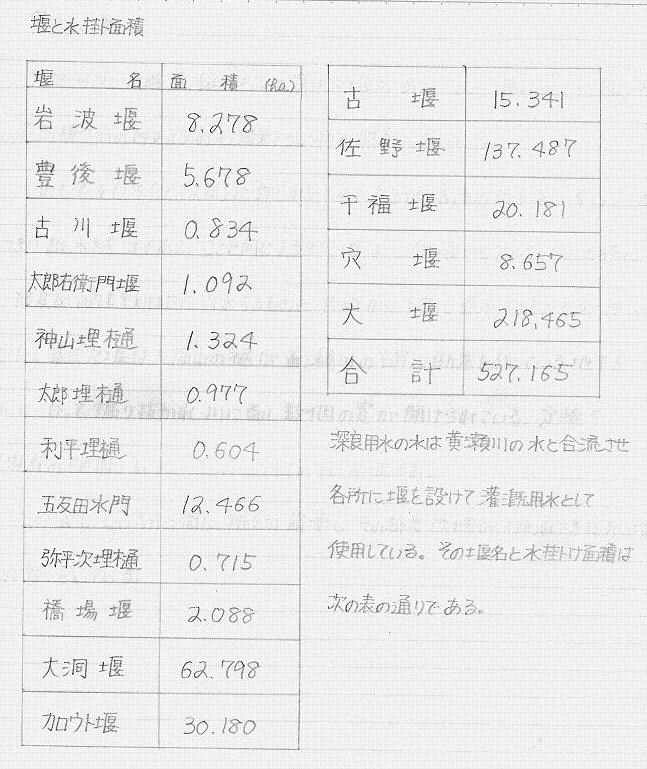 堰と水掛ト面積
堰 名 面 積 (ha)
岩波堰 8.278
豊後堰 5.678
古川堰 0.834
太郎右衛門堰 1.092
神山埋樋 1.324
太郎埋樋 0.977
利平埋樋 0.604
五反田水門 12.466
弥平次埋樋 0.715
橋場堰 2.088
大洞堰 62.798
カロウト堰 30.180
古堰 15.341
佐野堰 137.487
千福堰 20.181
穴堰 8.657
大堰 218.465
合計 527.165
深良用水の水は黄瀬川の水と合流させ
各所に堰を設けて灌漑用水として
使用している。その堰名と水掛け面積は
次の表の通りである。